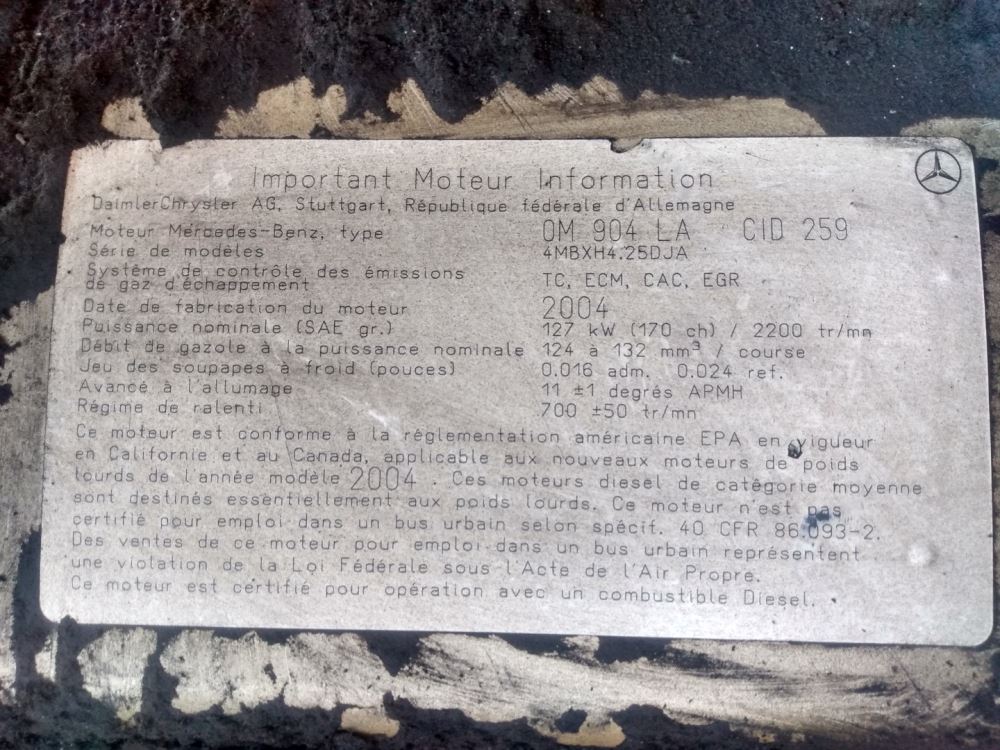 Important Moteur Information
DaimlerChrysler AG, Stuttgart, République fédérale d'Allemagne
Moteur Mercedes-Benz, type OM 904 LA CID 259
Série de modèles 4MBXH4.25DJA
Système de contrôle des émissions
de gaz d'échappement TC, ECM, CAC, EGR
Date de fabrication du moteur 2004
Puissance nominale (SAE gr.) 127 kW (170 ch) / 2200 tr/mn
Débit de gazole à la puissance nominale 124 à 132 mm³ / course
Jeu des soupapes à froid (pouces) 0.016 adm. 0.024 ref.
Avance à l'allumage 11 ±1 degrés APMH
Régime de ralenti 700 ±50 tr/mn
Ce moteur est conforme à la réglementation américaine EPA en vigueur
en Californie et au Canada, applicable aux nouveaux moteurs de poids
lourds de l'année modèle 2004 . Ces moteurs diesel de catégorie moyenne
sont destinés essentiellement aux poids lourds. Ce moteur n'est pas
certifié pour emploi dans un bus urbain selon spécif. 40 CFR 86.093-2.
Des ventes de ce moteur pour emploi dans un bus urbain représentent
une violation de la Loi Fédérale sous l'Acte de l'Air Propre.
Ce moteur est certifié pour opération avec un combustible Diesel.